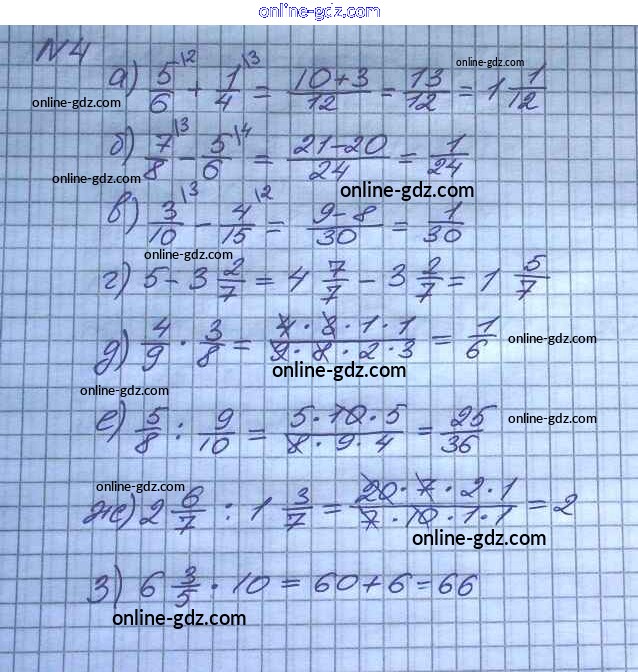 online-gdz.com
№4
а) 5/6 \2 + 1/4 \3 = (10+3)/12 = 13/12 = 1 1/12
online-gdz.com
online-gdz.com
б) 7/8 \3 - 5/6 \4 = (21-20)/24 = 1/24
online-gdz.com
online-gdz.com
в) 3/10 \3 - 4/15 \2 = (9-8)/30 = 1/30
online-gdz.com
г) 5 - 3 2/7 = 4 7/7 - 3 2/7 = 1 5/7
д) 4/9 · 3/8 = (4·3·1·1)/(9·8·2·3) = 1/6
online-gdz.com
online-gdz.com
online-gdz.com
е) 5/8 : 9/10 = (5·10·5)/(8·9·4) = 25/36
online-gdz.com
online-gdz.com
ж) 2 6/7 : 1 3/7 = (20·7·2·1)/(7·10·1·1) = 2
online-gdz.com
з) 6 3/5 · 10 = 60+6 = 66
online-gdz.com